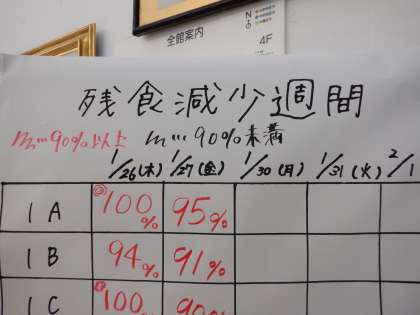 全館案内
4F
残食減少週間
m…90%以上 m…90%未満
1/26(木) 1/27(金) 1/30(月) 1/31(火) 2/1
1A 100% 95%
1B 94% 91%
1C 100 90%